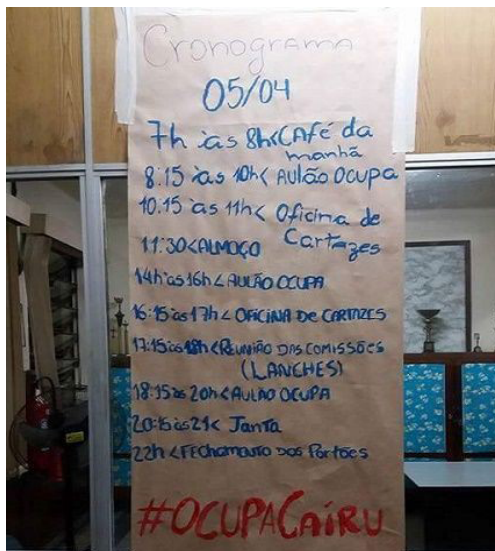 Cronograma
05/04
7h às 8h<Café da
manhã
8:15 às 10h< Aulão Ocupa
10:15 às 11h< Oficina de
Cartazes
11:30<ALMOÇO
14h às 16h<AULÃO OCUPA
16:15 às 17h<OFICINA De CARTAZES
17:15 às 18h<REUNIÃO DAS COMISSÕES
(LANCHES)
18:15 às 20h<AULÃO OCUPA
20:15 às 21< JANTA
22h <FEChamento dos Portões
#OCUPACAiRU